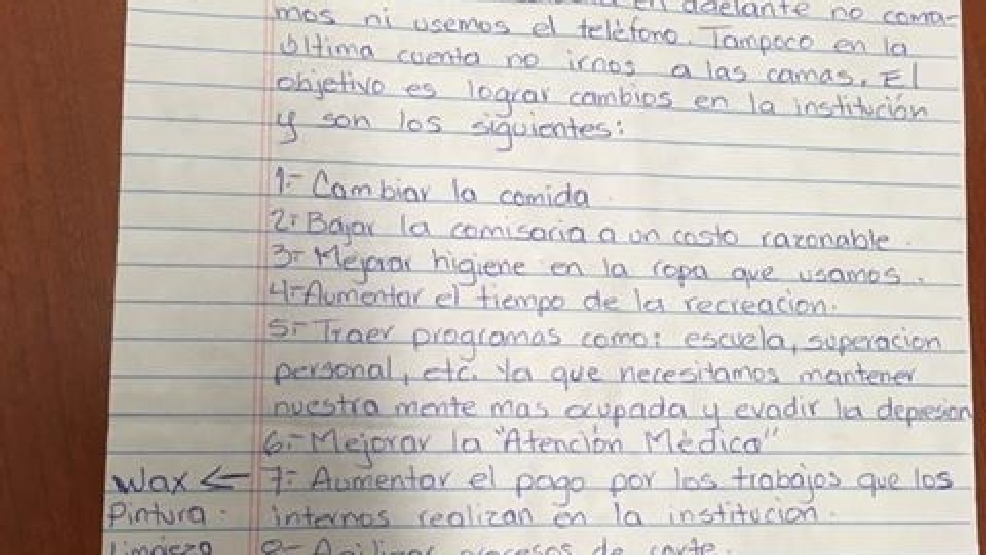 en adelante no coma-
mos ni usemos el teléfono. Tampoco en la
última cuenta no irnos a las camas. El
objetivo es lograr cambios en la institución
y son los siguientes:
1.- Cambiar la comida
2.- Bajar la comisaria a un costo razonable.
3.- Mejorar higiene en la ropa que usamos.
4.- Aumentar el tiempo de la recreacion.
5.- Traer programas como: escuela, superacion
personal, etc. Ya que necesitamos mantener
nuestra mente mas ocupada y evadir la depresion
6.- Mejorar la "Atención Médica"
Wax ← 7.- Aumentar el pago por los trabajos que los
Pintura. internos realizan en la institucion.
Limpieza 8.- Agilizar procesos de corte.